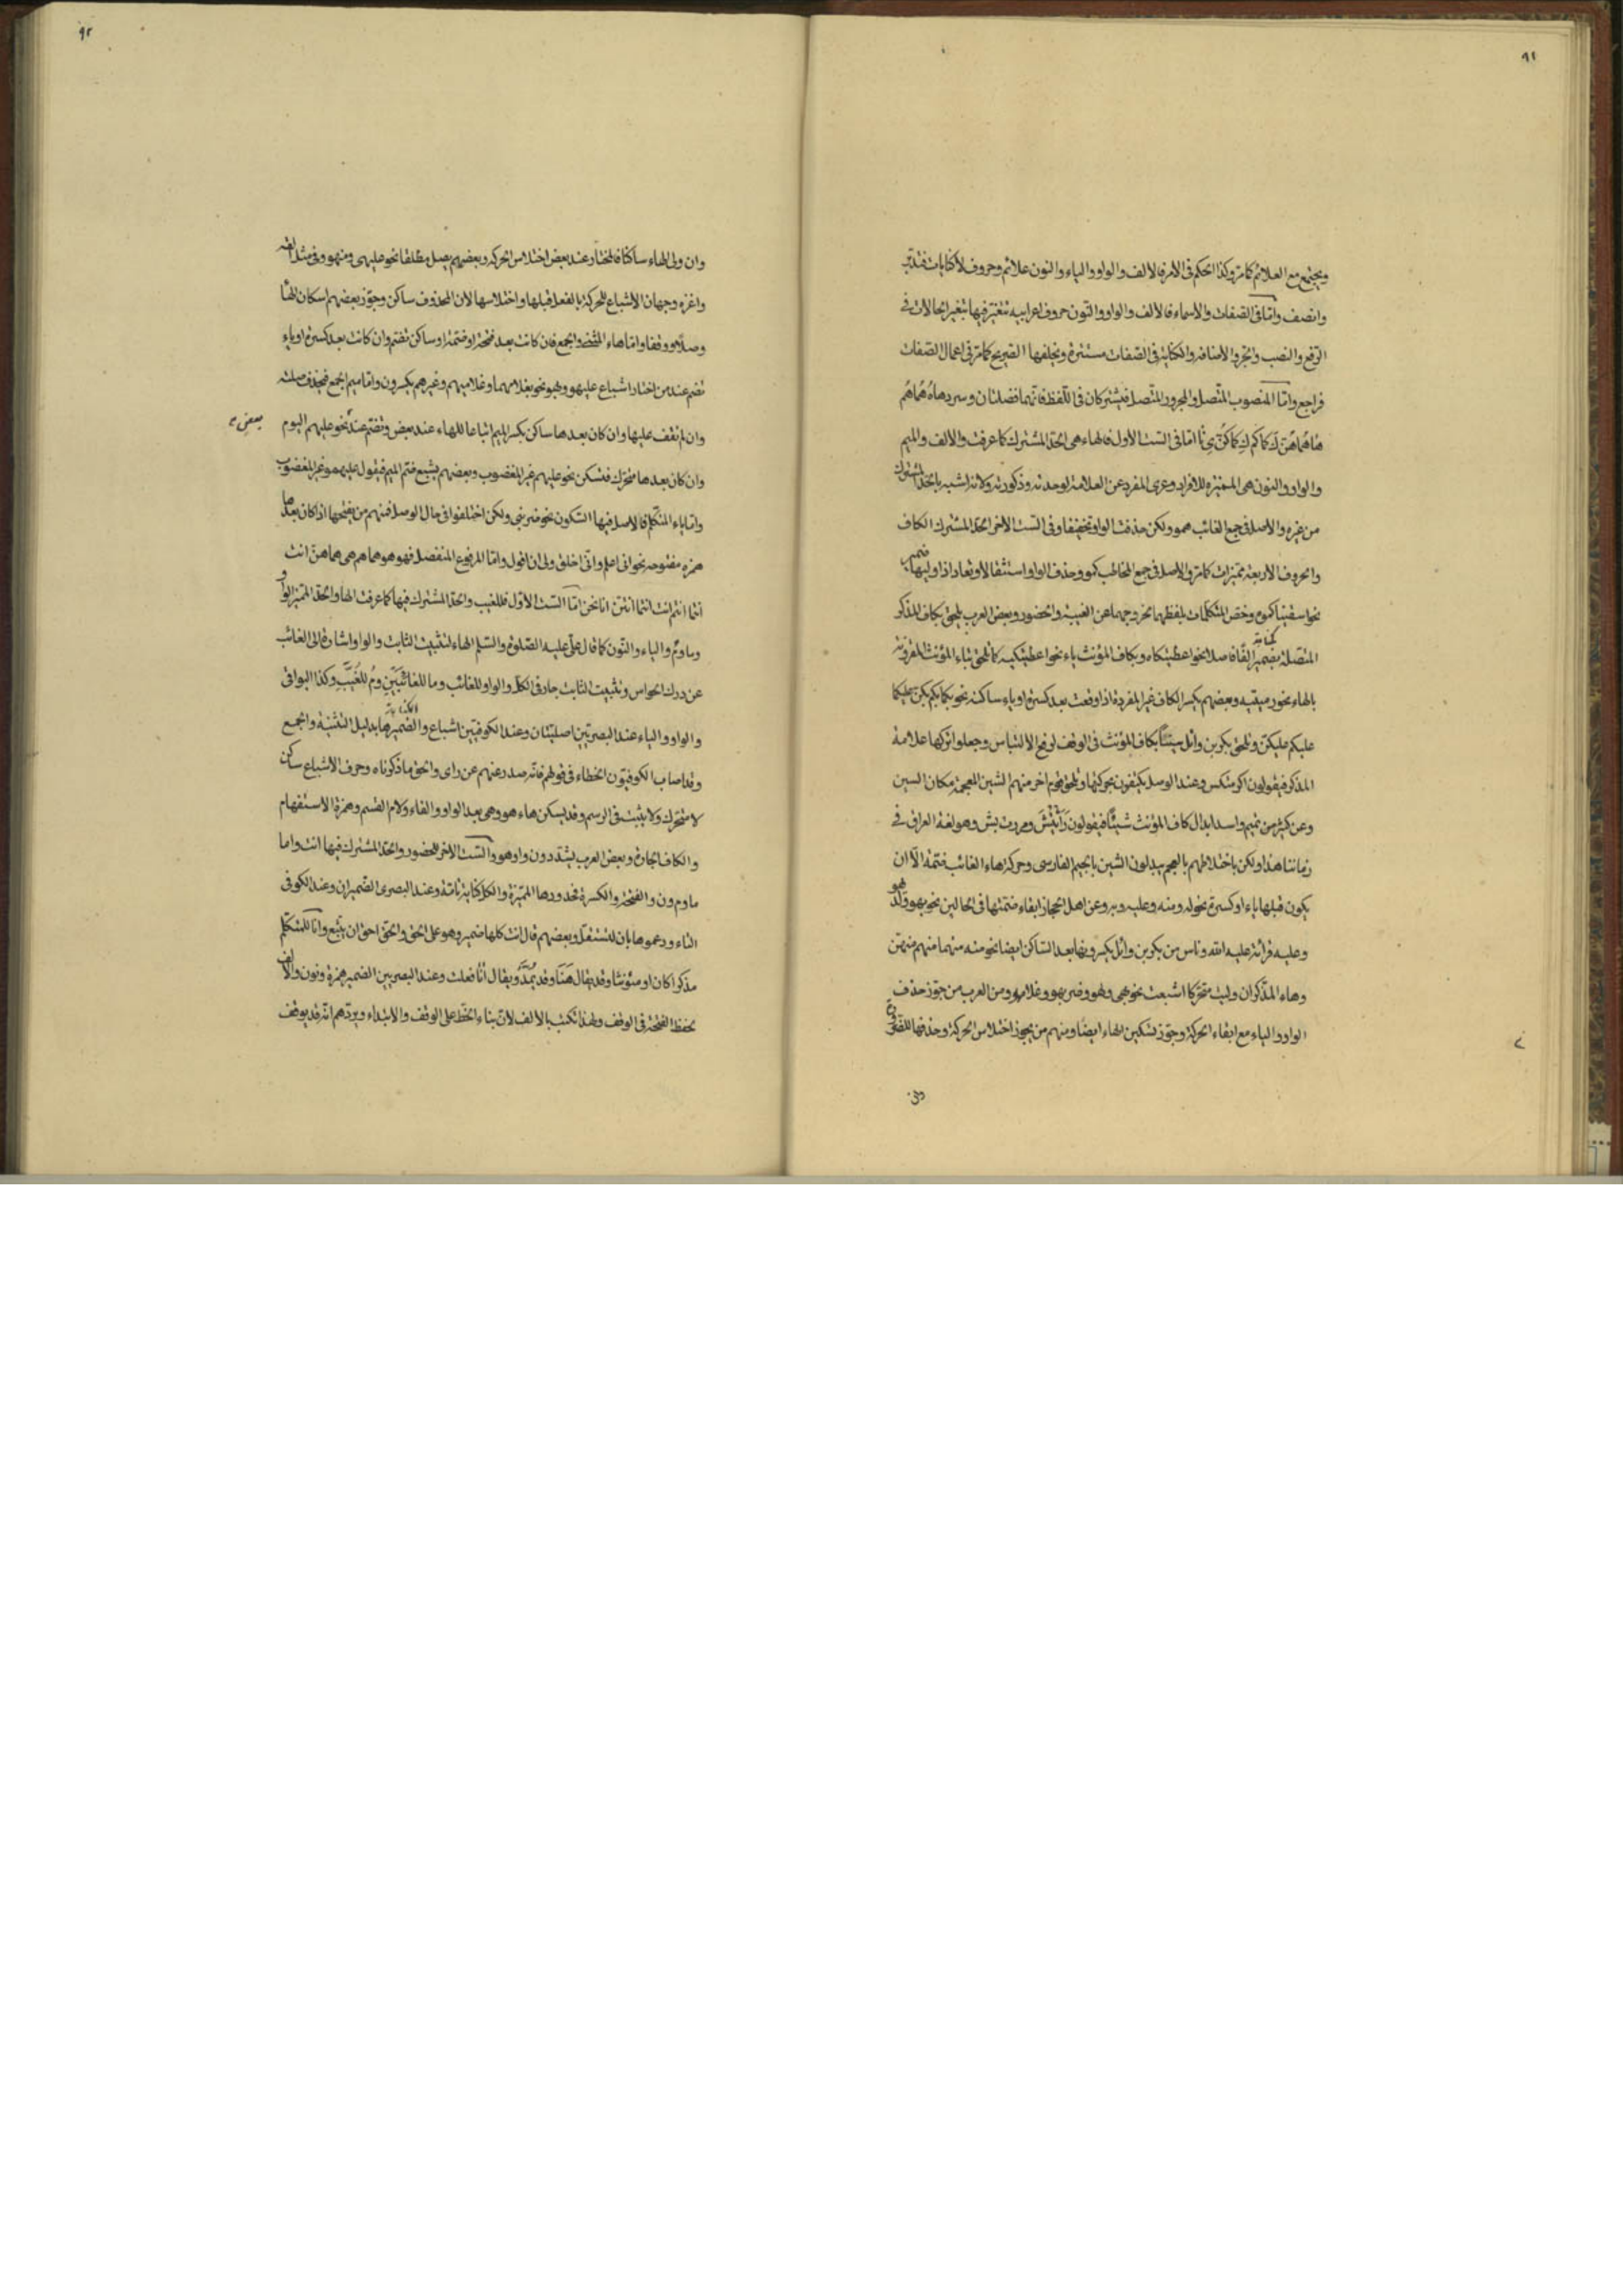 ٩١
ويجتمع مع العلائم كما مر وكذا الحكم في الامر فالالف والواو والياء والنون علائم وحروف لا كنايات فتدبر
وانصف واما في الصفات والاسماء فالالف والواو والنون حروف اعرابيه تتغير فيها بتغير الحالات في
الرفع والنصب والجر والاضافه والكناية في الصفات مستترة ويخلفها الصريح كما مر في اعمال الصفات
فراجع واما المنصوب المتصل والمجرور المتصل فيشتركان في اللفظ فانهما فضلتان وسردها ه هما هم
ها هما هن ك كما كم ك كما كن ي نا اما في الست الاول فالهاء هي الحد المشترك كما عرفت والالف والميم
والواو والنون هي المميزه للافراد وعرى المفرد عن العلامة لوحدته وذكورته وكانه اشبه بالحد المشترك
من غيره والاصل في جمع الغائب همو ولكن حذفت الواو تخفيفا وفي الست الاخر الحد المشترك الكاف
والحروف الاربعة مميزات كما مر والاصل في جمع المخاطب كمو وحذف الواو استثقالا وتعاد اذا وليها ضمير
نحو اسقيناكموه وخص المتكلمات بلفظهما لخروجهما عن الغيبة والحضور وبعض العرب يلحق بكاف المذكر
المتصلة بضمير الفا فاصلا نحو اعطيتكاه وبكاف المؤنث ياء نحو اعطيتكيه كما تلحق بتاء المؤنث المقرونة
بالهاء نحو رميتيه وبعضهم يكسر الكاف غير المفردة اذا وقعت بعد كسرة او ياء ساكنه نحو بكما بكم بكن عليكما
عليكم عليكن وتلحق بكر بن وائل سينا بكاف المؤنث في الوقف لرفع الالتباس وجعلوا تركها علامة
المذكر فيقولون اكرمتكس وعند الوصل يكتفون بحركتها وتلحق قوم اخر منهم الشين المعجمة مكان السين
وعن كثير من تميم واسد ابدال كاف المؤنث شينا فيقولون رأيتش ومررت بش وهو لغة العراق في
زماننا هذا ولكن باختلاطهم بالعجم يبدلون الشين بالجيم الفارسي وحركة هاء الغائب ضمة الا ان
يكون قبلها ياء او كسرة نحو له ومنه وعليه وبه وعن اهل الحجاز ابقاء ضمتها في الحالين نحو بهو ولدهو
وعليه قرائة عليه الله وناس من بكر بن وائل يكسرونها بعد الساكن ايضا نحو منه منهما منهم منهن
وهاء المذكر ان وليت متحركا اشبعت نحو بهي ولهو وضربهو وغلامهو ومن العرب من جوز حذف
الواو والياء مع ابقاء الحركة وجوز تسكين الهاء ايضا ومنهم من يجوز اختلاس الحركة وحذفها للقفى
وان
٩٢
وان ولى الهاء ساكنا فالمختار عند بعض اختلاس الحركه وبعضهم يصل مطلقا نحو عليهي ومنهو وفي مثل القه
واغزه وجهان الاشباع للحركة بالفعل قبلها واختلاسها لان المحذوف ساكن وجوز بعضهم اسكان الهاء
وصلا ووقفا واما هاء المثنى والجمع فان كانت بعد فتحة او ضمة او ساكن تضم وان كانت بعد كسرة او ياء
تضم عند من اختار اشباع عليهو وبهو نحو بغلامهما وغلاميهم وغيرهم يكسرون واما ميم الجمع فيحذف صلته
وان لم تقف عليها وان كان بعدها ساكن بكسر الميم اتباعا للهاء عند بعض وتضم عند نحو عليهم اليوم
بعض
وان كان بعدها متحرك فتسكن نحو عليهم غير المغضوب وبعضهم يشبع ضم الميم فيقول عليهمو غير المغضوب
واما ياء المتكلم فالاصل فيها السكون نحو ضربني ولكن اختلفوا في حال الوصل فمنهم من يفتحها اذا كان بعدها
همزه مفتوحه نحو اني اعلم واني اخلق ولى ان اقول واما المرفوع المنفصل فهو هو هما هم هي هما هن انت
انتما انتم انت انتما انتن انا نحن اما الست الاول فللغيب والحد المشترك فيها كما عرفت الهاء والحد المميز الواو
وما وم والياء والنون كما قال على عليه الصلوة والسلم الهاء لتثبيت الثابت والواو اشارة الى الغائب
عن درك الحواس وتثبيت الثابت جار في الكل والواو للغائب وما للغائبين وم للغيب وكذا البواقي
والواو والياء عند البصريين اصليتان وعند الكوفيين اشباع والضمير ها بدليل التثنية والجمع
وقد اصاب الكوفيون الخطاء في قولهم فانه صدر عنهم عن راى والحق ما ذكرناه وحرف الاشباع ساكن
لا متحرك ولا يثبت في الرسم وقد يسكن هاء هو وهي بعد الواو والفاء ولام القسم وهمزة الاستفهام
والكاف الجارة وبعض العرب يشددون واو هو والست الاخر للحضور والحد المشترك فيها انت واما
ما وم ون والفتحة والكسرة فحدودها المميزة والكل كناية تامة وعند البصري الضمير ان وعند الكوفي
التاء ودعموها بان لتستقل وبعضهم قال انت كلها ضمير وهو على الحق والحق احق ان يتبع وانا للمتكلم
مذكرا كان او مؤنثا وقد يقال هنا وقد يمد ويقال آنا فعلت وعند البصريين الضمير همزة ونون والالف
لحفظ الفتحة في الوقف ولهذا تكتب بالالف لان بناء الخط على الوقف والابتداء ويردهم انه قد يوقف